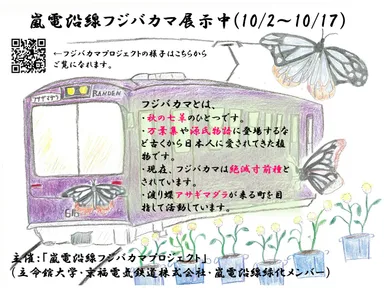 嵐電沿線フジバカマ展示中(10/2～10/17)
←フジバカマプロジェクトの様子はこちらから
ご覧になれます。
RANDEN
フジバカマとは、
・秋の七草のひとつです。
・万葉集や源氏物語に登場するな
ど古くから日本人に愛されてきた植
物です。
・現在、フジバカマは絶滅寸前種と
されています。
・渡り蝶アサギマダラが来る町を目
指して活動しています。
616
主催:「嵐電沿線フジバカマプロジェクト」
(立命館大学・京福電気鉄道株式会社・嵐電沿線緑化メンバー)